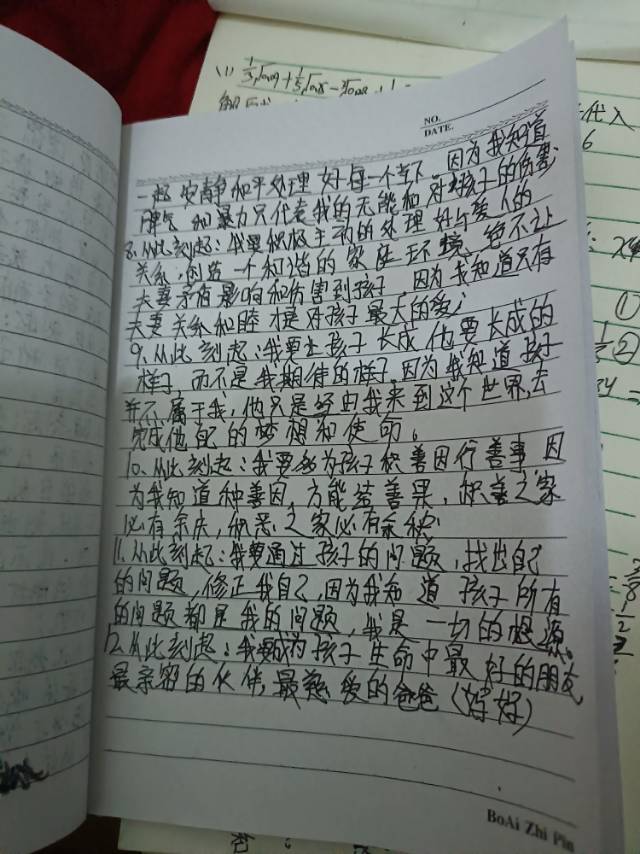 (1)
NO.
DATE.
代入
6
一起安静和平处理好每一个当下。因为我知道
脾气和暴力只代表我的无能和对孩子的伤害
8.从此刻起:我要积极主动的处理好与爱人的
关系,创造一个和谐的家庭环境,绝不让
夫妻矛盾影响和伤害到孩子,因为我知道只有
夫妻关系和睦才是对孩子最大的爱;
9.从此刻起:我要让孩子长成他要长成的
样子,而不是我期待的样子,因为我知道孩子
并不属于我,他只是经由我来到这个世界,去
完成他自己的梦想和使命。
10.从此刻起:我要多为孩子积善因行善事因
为我知道种善因,方能结善果,积善之家
必有余庆,积恶之家必有余殃
11.从此刻起:我要通过孩子的问题,找出自己
的问题,修正我自己,因为我知道孩子所有
的问题都是我的问题,我是一切的根源。
12.从此刻起:我要成为孩子生命中最好的朋友
最亲密的伙伴,最慈爱的爸爸(妈妈)
①
②
BoAi Zhi Pin